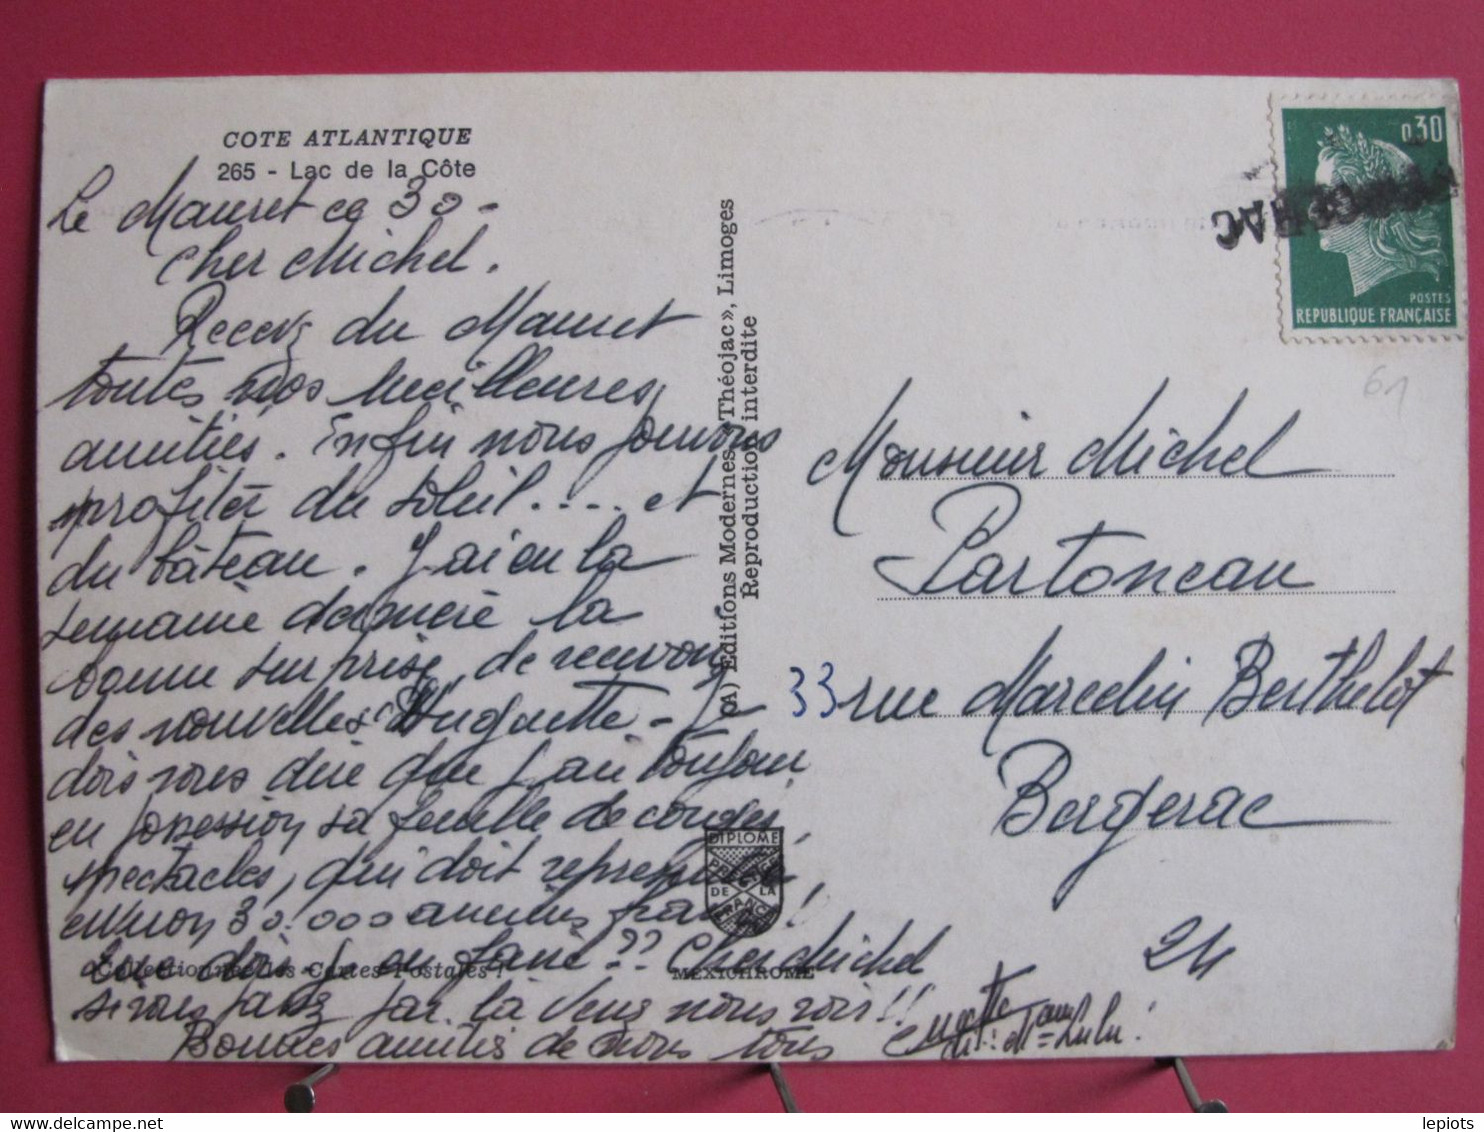 COTE ATLANTIQUE
265 - Lac de la Côte
Le Mauret ce 30 -
Cher Michel.
Recevez du Mauret
toutes nos meilleures
amitiés. Enfin nous pouvons
profiter du soleil.... et
du bâteau. J'ai eu la
semaine dernière la
bonne surprise de recevoir
des nouvelles d'Huguette - Je
dois vous dire que j'ai toujours
en possession sa feuille de congés
spectacles, qui doit représenter
environ 30.000 anciens francs !
Que dois-je en faire ?? Cher Michel
si vous passez par là venez nous voir !!
Bonnes amitiés de nous tous
Lulu !
(A) Editions Modernes «Théojac», Limoges
Reproduction interdite
DIPLOME
PRESTIGE
DE LA
FRANCE
Collectionnez les Cartes Postales !
MEXICHROME
0,30
POSTES
REPUBLIQUE FRANÇAISE
61
Monsieur Michel
Partoneau
33 rue Marcelin Berthelot
Bergerac
24
lepiots